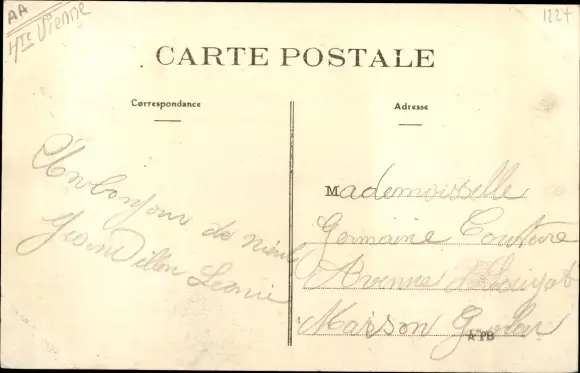 AA
Hte Vienne
1224
CARTE POSTALE
Correspondance
Adresse
Un bonjour de
Léonie
Mademoiselle
Germaine Couture
Avenue
Maison
A PB